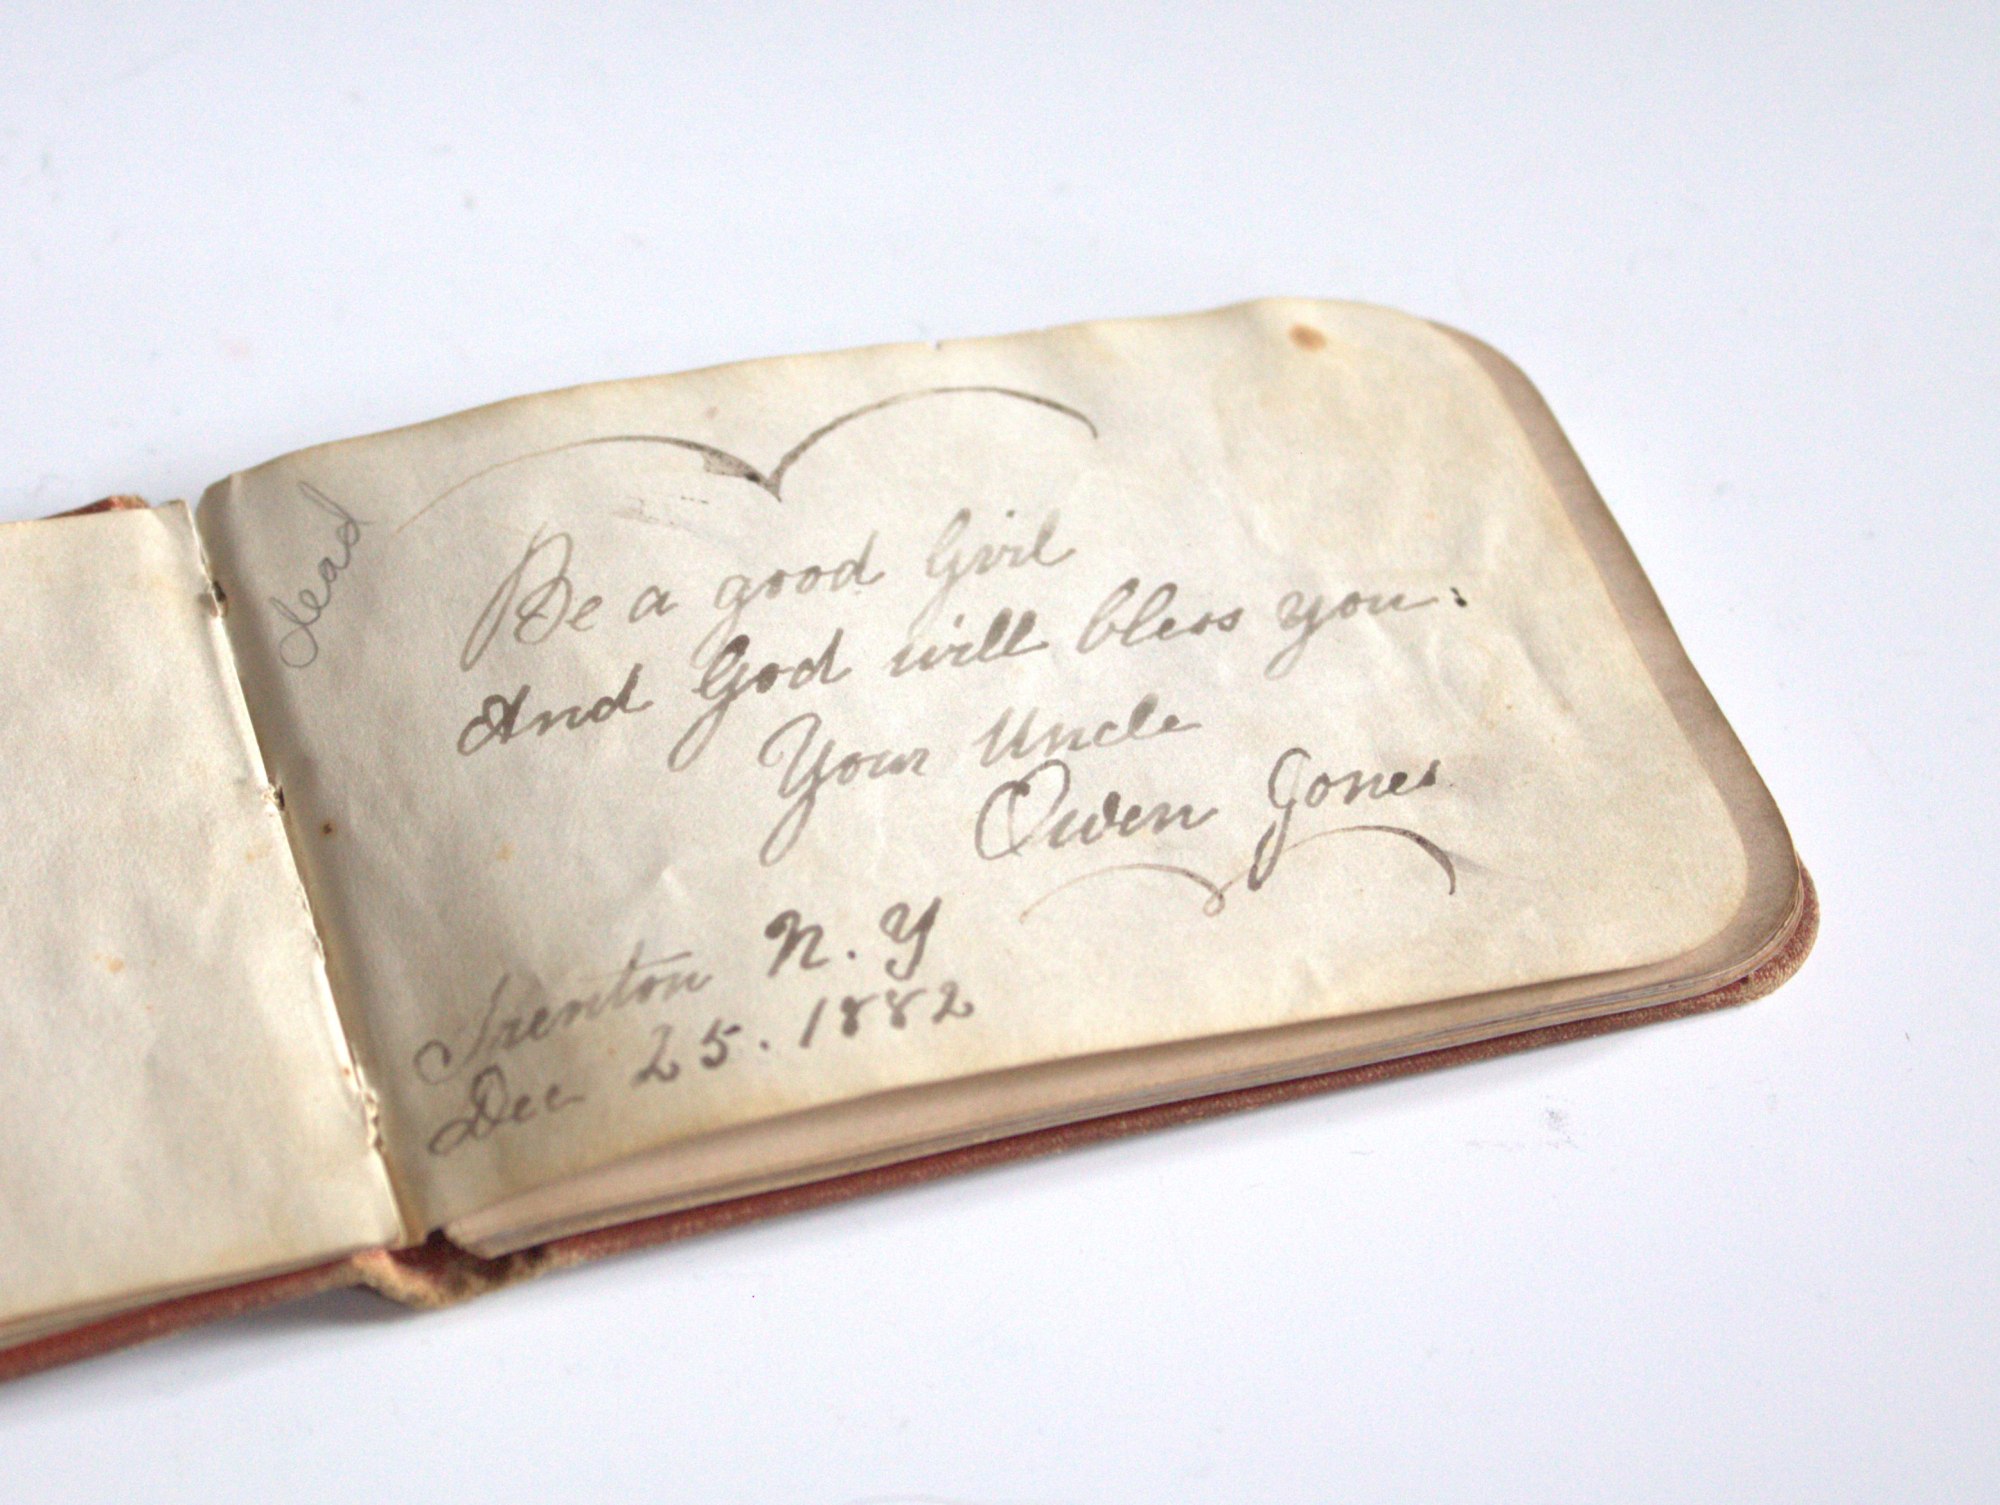 dead
Be a good Girl
And God will bless you.
Your Uncle
Owen Jones
Trenton N.Y
Dec 25. 1882